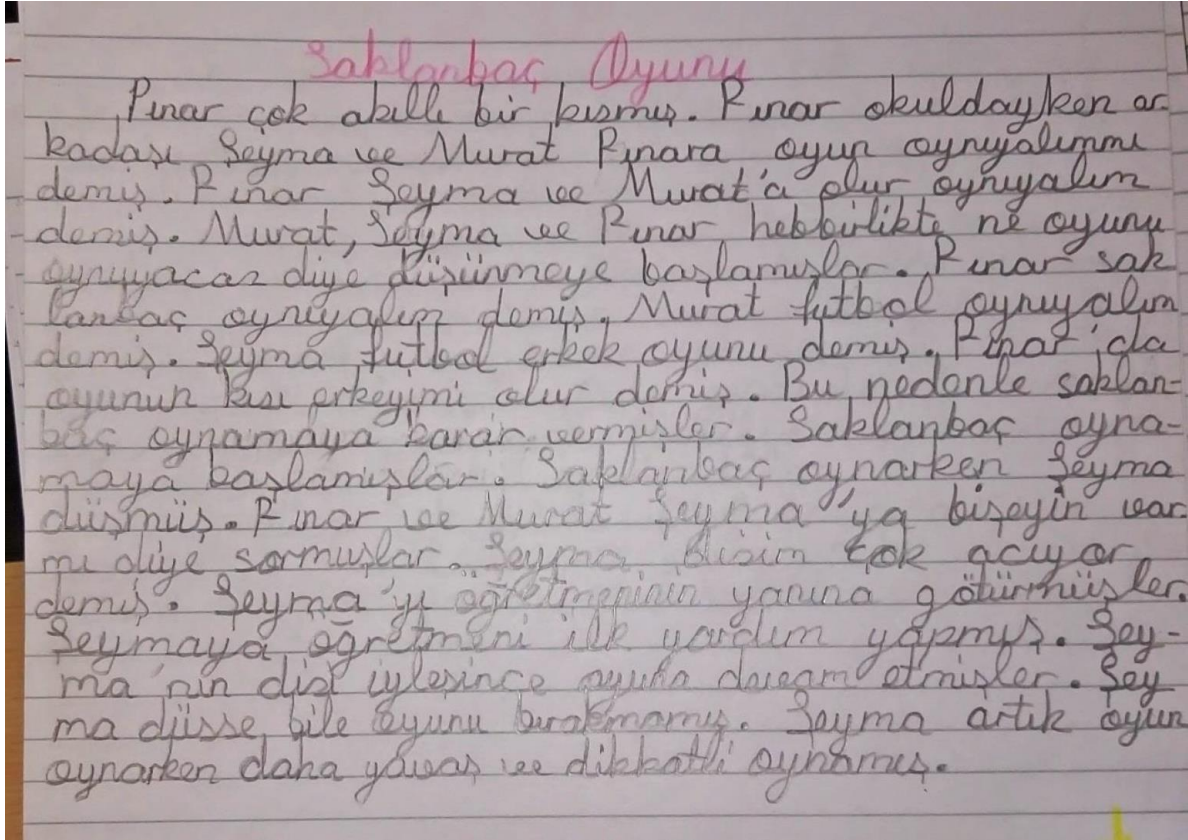 Saklanbaç Oyunu
Pınar çok akıllı bir kısmış. Pınar okuldayken ar-
kadaşı Şeyma ve Murat Pınara oyun oynıyalımmı
demiş. Pınar Şeyma ve Murat'a olur oynıyalım
demiş. Murat, Şeyma ve Pınar hebbirlikte ne oyunu
oynıyacaz diye düşünmeye başlamışlar. Pınar sak
lanbaç oynıyalım demiş. Murat futbol oynıyalım
demiş. Şeyma futbol erkek oyunu demiş. Pınar'da
oyunun kısı erkeyimi olur demiş. Bu nedenle saklan-
baç oynamaya karar vermişler. Saklanbaç oyna-
maya başlamışlar. Saklanbaç oynarken Şeyma
düşmüş. Pınar ve Murat Şeyma'ya bişeyin var
mı diye sormuşlar. Şeyma dizim çok acıyor
demiş. Şeyma'yı öğretmeninin yanına götürmüşler.
Şeymaya öğretmeni ilk yardım yapmış. Şey-
ma'nın dizi iyleşince oyuna devam etmişler. Şey
ma düşse bile oyunu bırakmamış. Şeyma artık oyun
oynarken daha yavaş ve dikkatli oynamış.